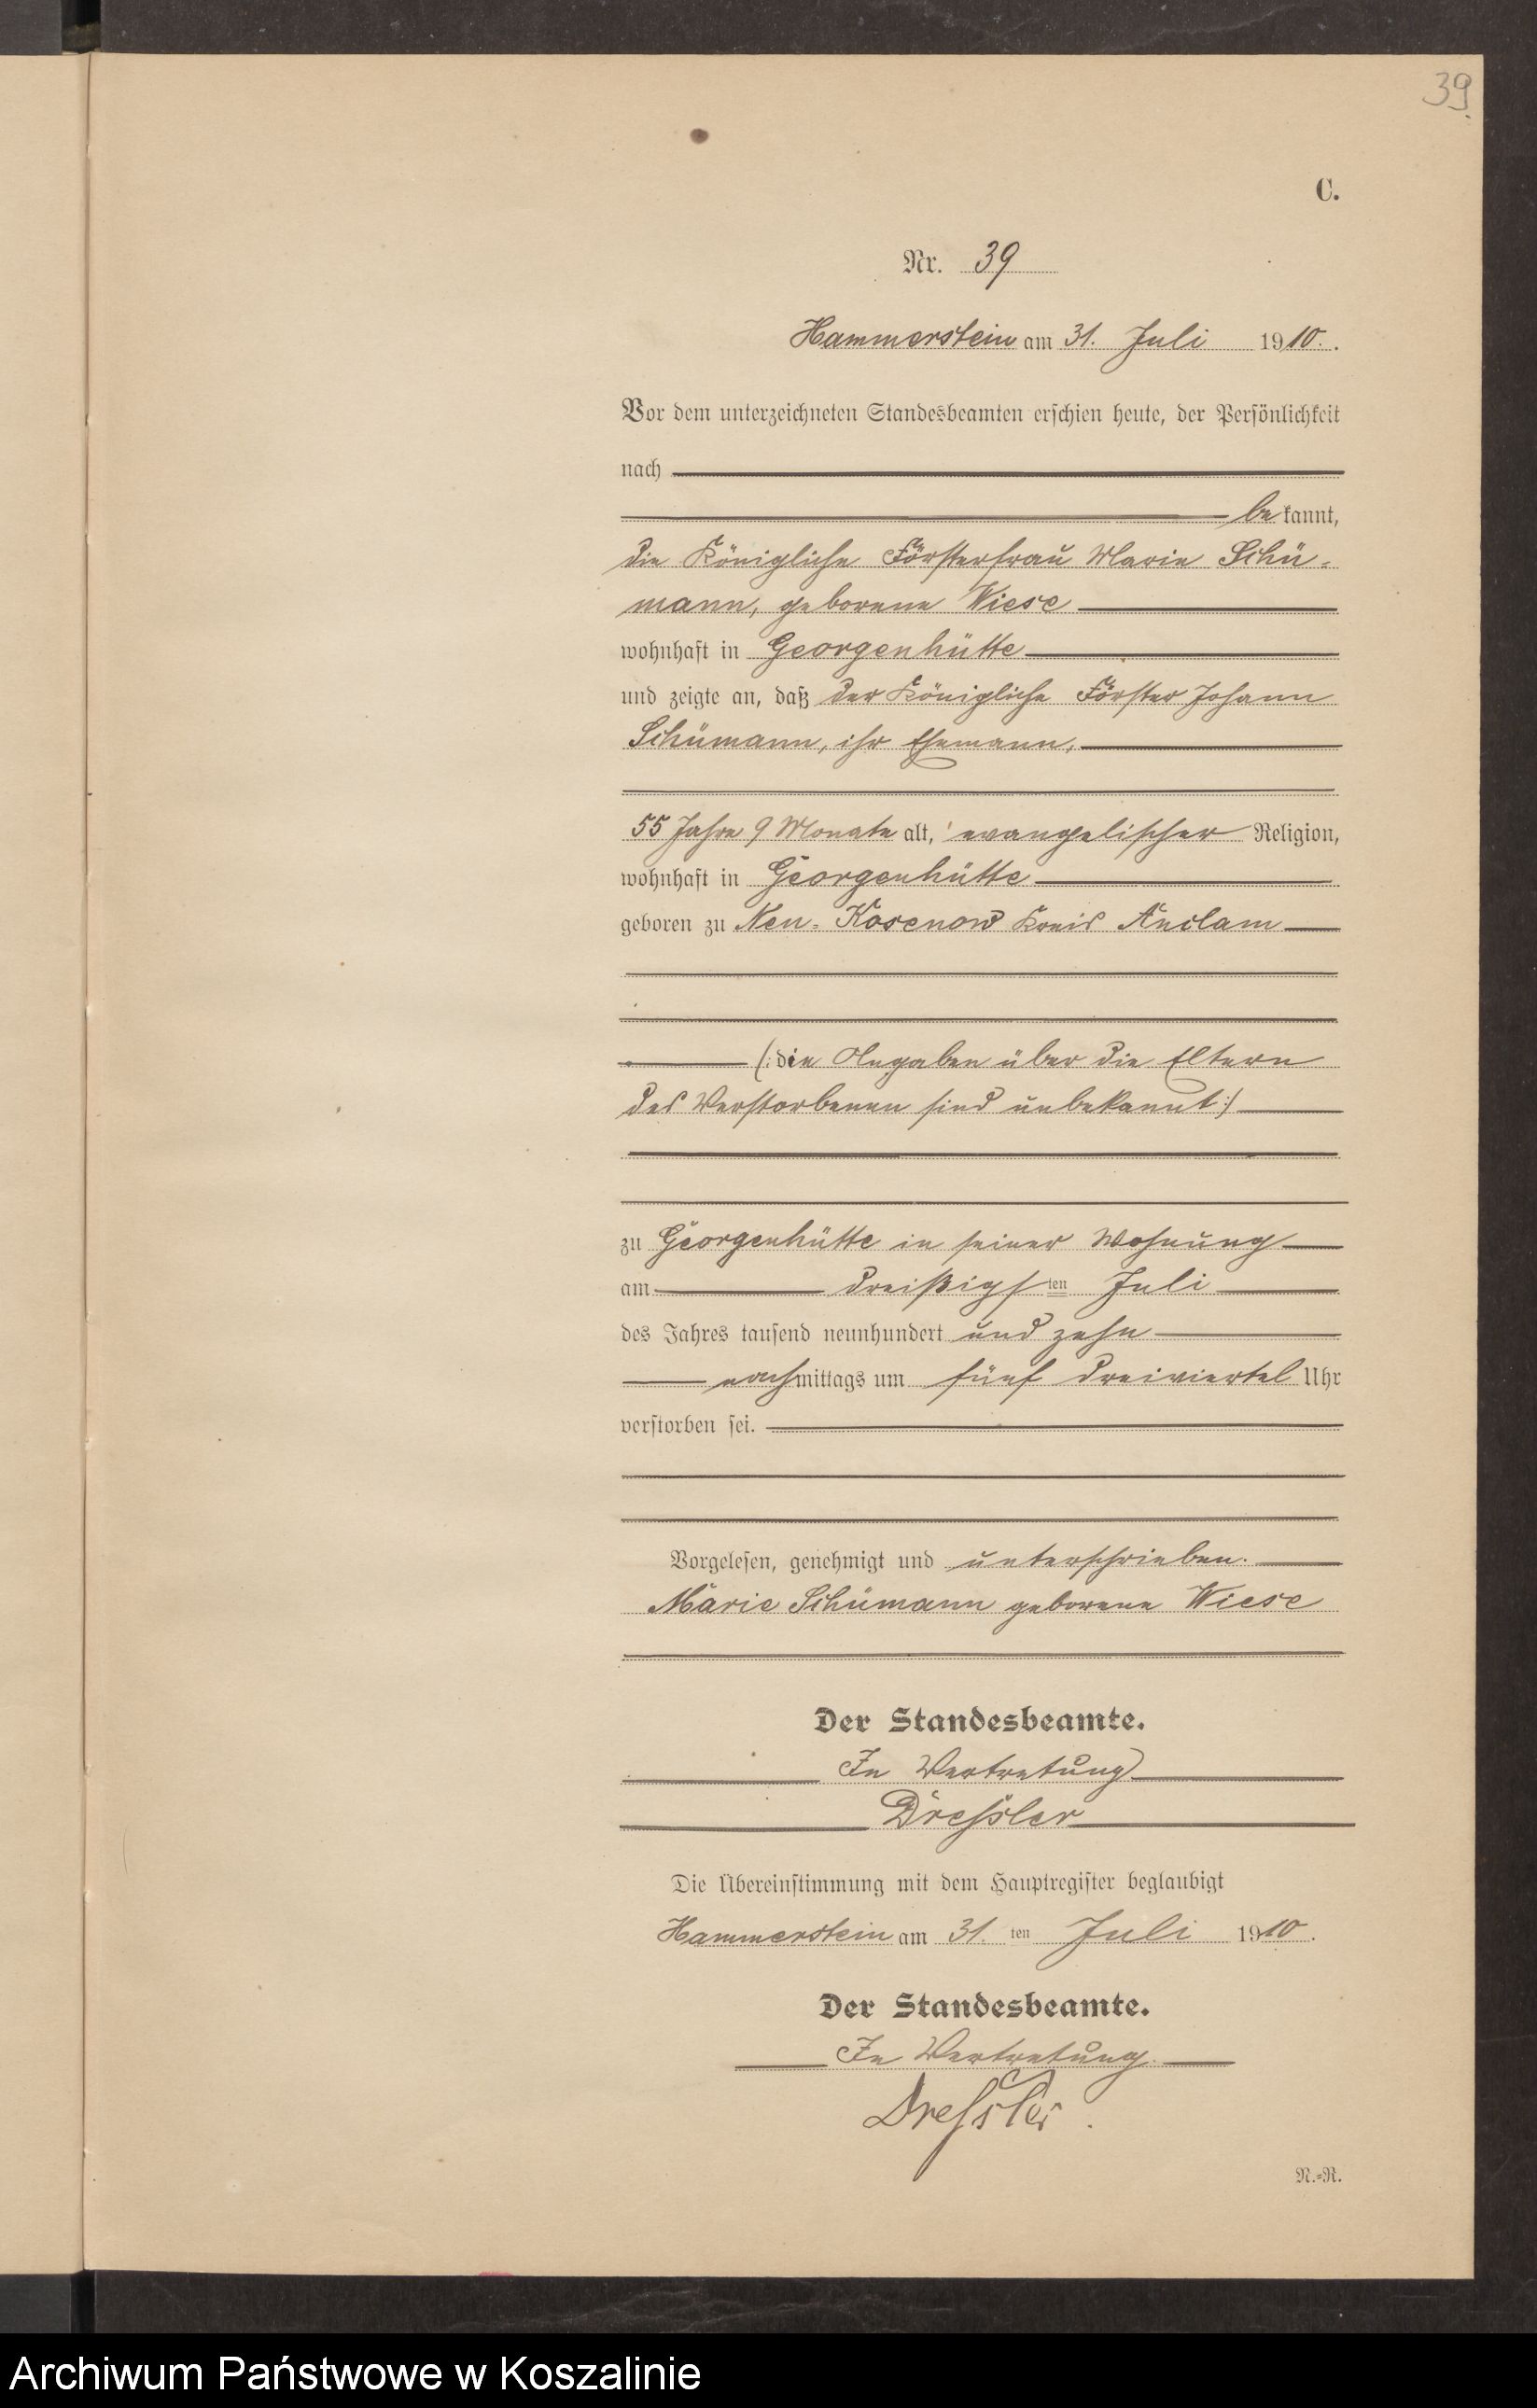 39.
C.
Nr. 39
Hammerstein am 31. Juli 1910.
Vor dem unterzeichneten Standesbeamten erschien heute, der Persönlichkeit
nach
bekannt,
die Königliche Försterfrau Marie Schü-
mann, geborene Wiese
wohnhaft in Georgenhütte
und zeigte an, daß der Königliche Förster Johann
Schümann, ihr Ehemann,
55 Jahre 9 Monate alt, evangelischer Religion,
wohnhaft in Georgenhütte
geboren zu Neu-Kosenow Kreis Anclam
(: die Angaben über die Eltern
des Verstorbenen sind unbekannt :)
zu Georgenhütte in seiner Wohnung
am dreißigsten Juli
des Jahres tausend neunhundert und zehn
nachmittags um fünf dreiviertel Uhr
verstorben sei.
Vorgelesen, genehmigt und unterschrieben.
Marie Schümann geborene Wiese
Der Standesbeamte.
In Vertretung
Dreßler
Die Übereinstimmung mit dem Hauptregister beglaubigt
Hammerstein am 31. ten Juli 1910.
Der Standesbeamte.
In Vertretung.
Dreßler.
N.=R.
Archiwum Państwowe w Koszalinie